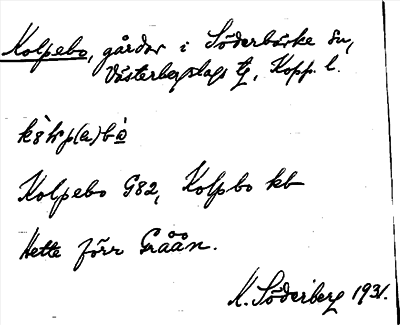 Kolpebo, gårdar i Söderbärke sn,
Västerbergslags tg, Kopp. l.
Kolpebo G82, Kolpbo kb
Hette förr Gråån.
K. Söderberg 1931.